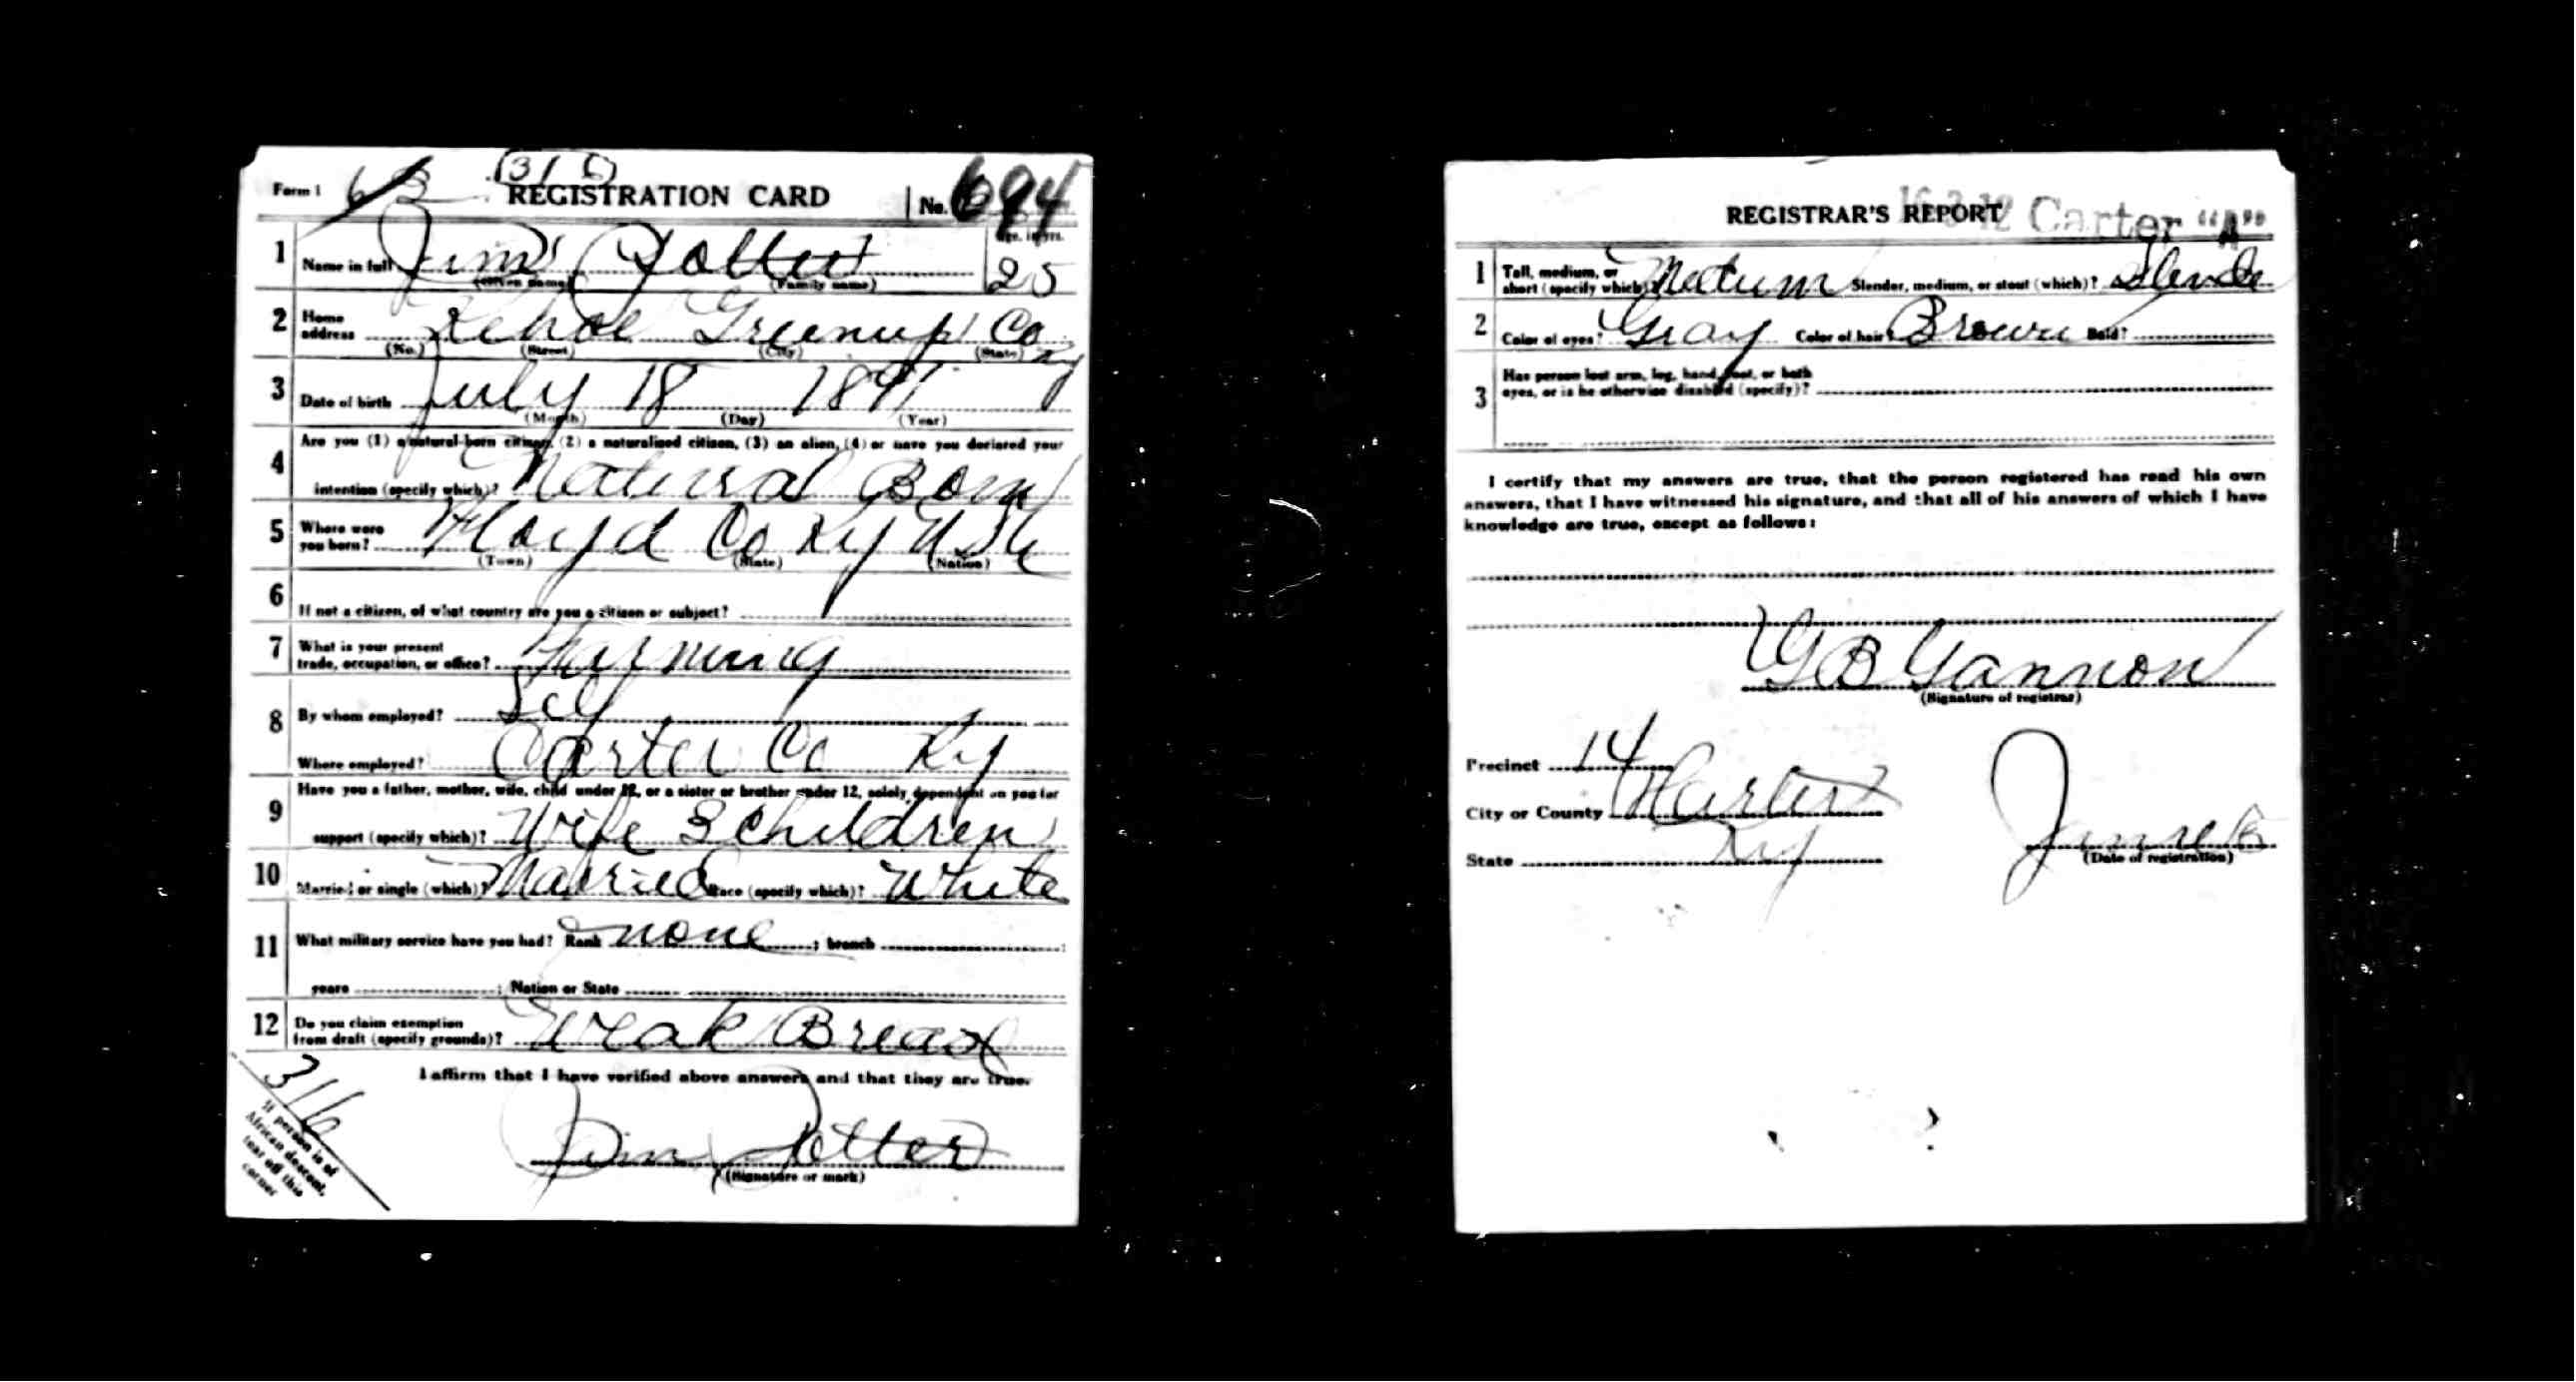 Form 1 REGISTRATION CARD No. 694
1 Name in full Jim Potter Age, in yrs. 25
(Given name) (Family name)
2 Home address Kehoe Greenup Co Ky
(No.) (Street) (City) (State)
3 Date of birth July 18 1891
(Month) (Day) (Year)
4 Are you (1) a natural-born citizen, (2) a naturalized citizen, (3) an alien, (4) or have you declared your
intention (specify which)? Natural Born
5 Where were you born? Floyd Co Ky
(Town) (State) (Nation)
6 If not a citizen, of what country are you a citizen or subject?
7 What is your present trade, occupation, or office? Farming
8 By whom employed? Self
Where employed? Carter Co Ky
9 Have you a father, mother, wife, child under 12, or a sister or brother under 12, solely dependent on you for
support (specify which)? Wife 3 Children
10 Married or single (which)? Married Race (specify which)? White
11 What military service have you had? Rank none ; branch ;
years ; Nation or State
12 Do you claim exemption from draft (specify grounds)? Weak
I affirm that I have verified above answers and that they are true.
Jim Potter
(Signature or mark)
316
If person is of
African descent,
tear off this
corner
REGISTRAR'S REPORT Carter "A"
1 Tall, medium, or short (specify which)? Slender, medium, or stout (which)? Slender
2 Color of eyes? Gray Color of hair? Brown Bald?
3 Has person lost arm, leg, hand, foot, or both
eyes, or is he otherwise disabled (specify)?
I certify that my answers are true, that the person registered has read his own
answers, that I have witnessed his signature, and that all of his answers of which I have
knowledge are true, except as follows:
G B Gannon
(Signature of registrar)
Precinct 14
City or County Carter
State Ky
June 5
(Date of registration)